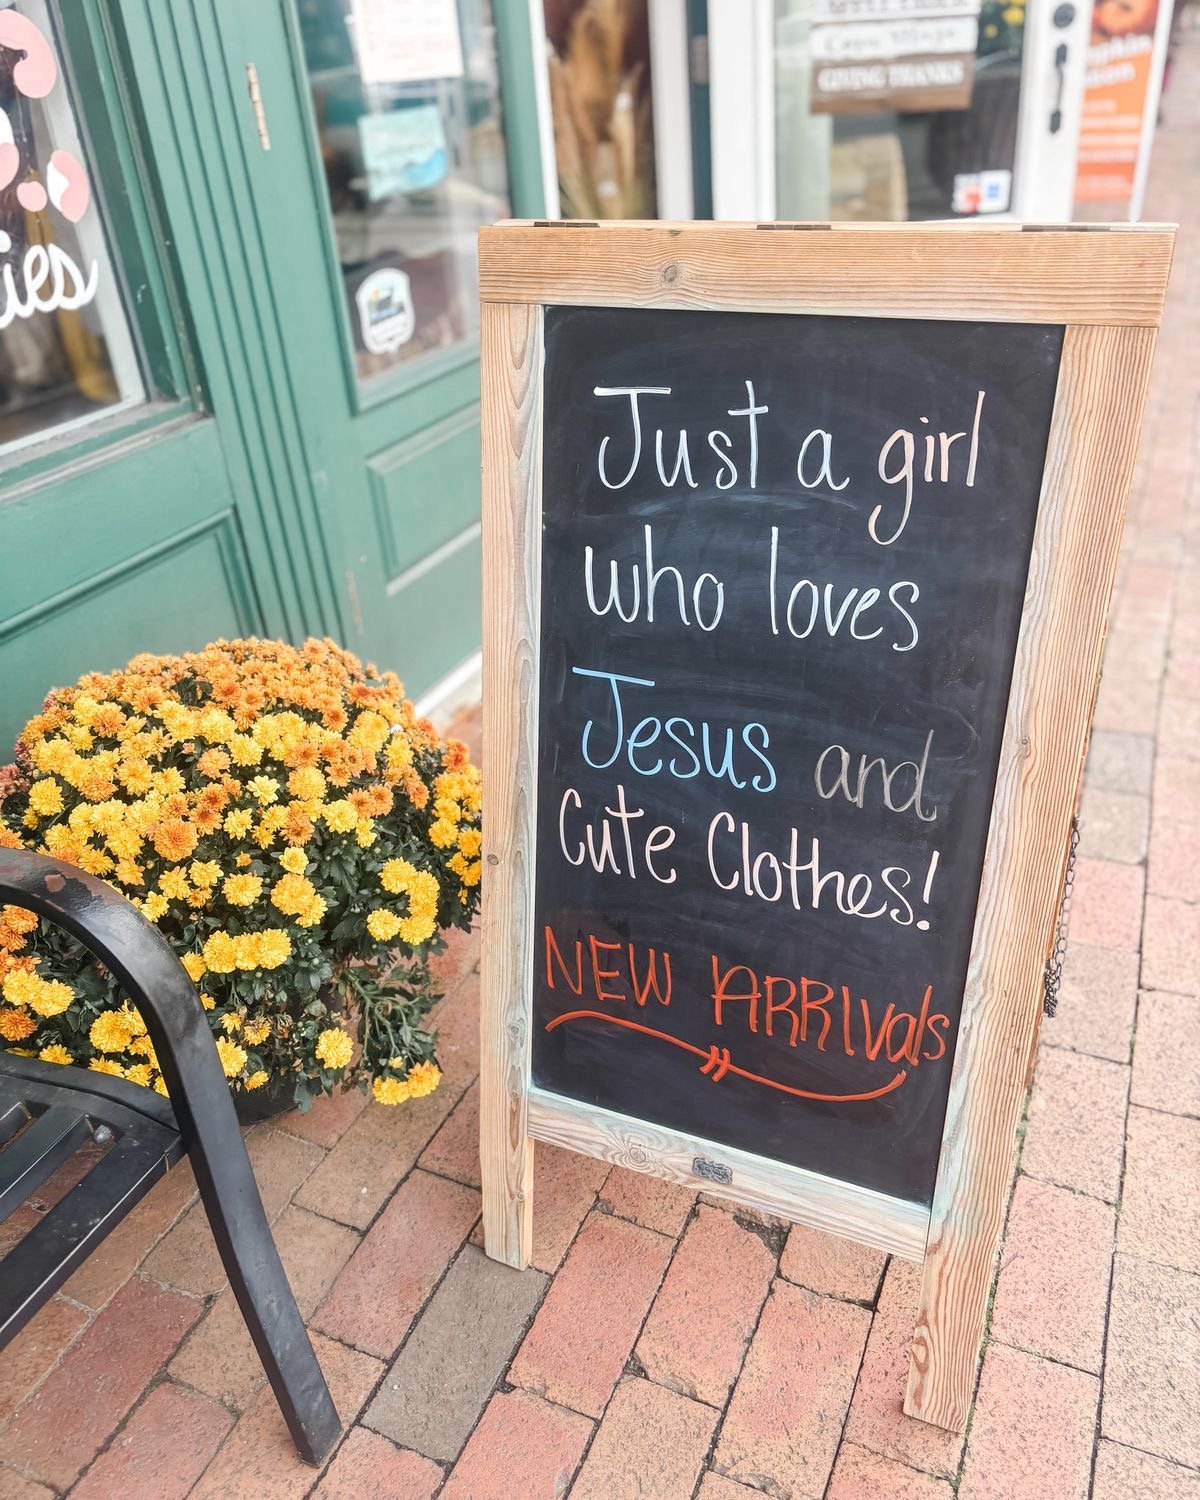 Just a girl
who loves
Jesus and
Cute Clothes!
NEW ARRIVals
ies
GIVING THANKS